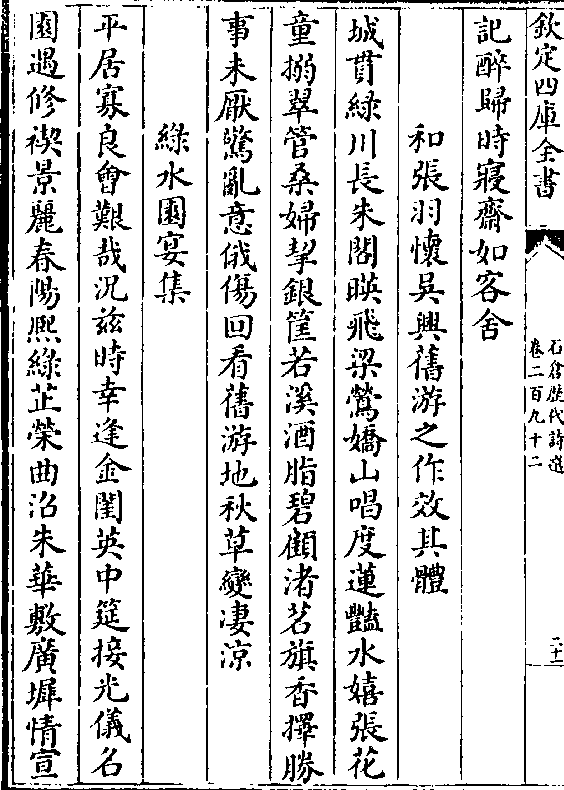 欽定四庫全書
石倉歷代詩選
卷二百九十二
二十一
記醉歸時寢齋如客舍
和張羽懷吳興舊游之作效其體
城貫綠川長朱閣暎飛梁鶯嬌山唱度蓮豔水嬉張花
童搦翠管桑婦挈銀筐若溪酒脂碧顧渚茗旗香擇勝
事未厭驚亂意俄傷回看舊游地秋草變凄涼
綠水園宴集
平居寡良會艱哉況兹時幸逢金閨英中筵接光儀名
園遇修禊景麗春陽熙綠芷榮曲沼朱華敷廣墀情宣